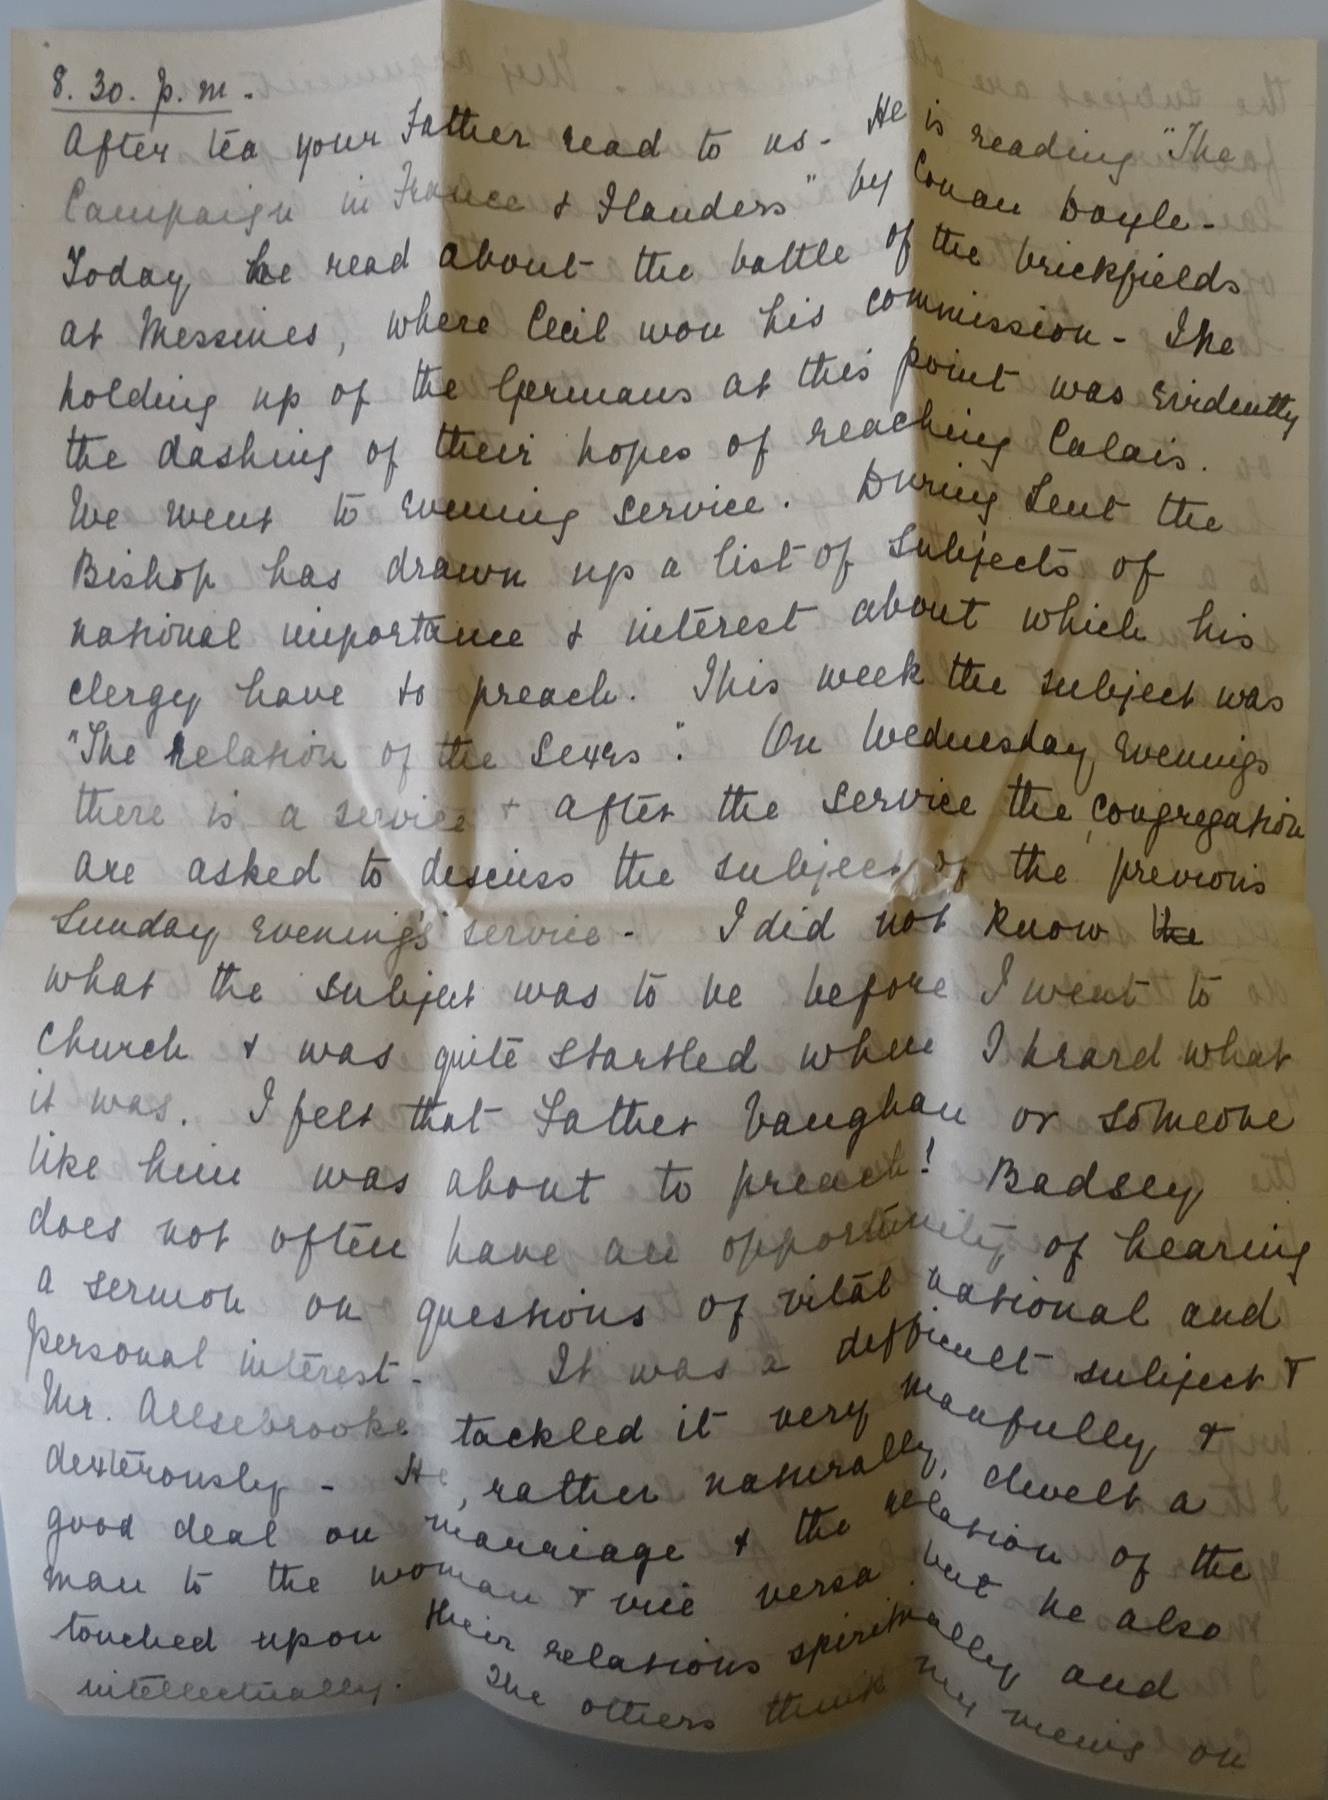 8. 30. p. m.
After tea your Father read to us - He is reading "The
Campaign in France & Flanders" by Conan Doyle -
Today he read about the battle of the brickfields
at Messines, where Cecil won his commission - The
holding up of the Germans at this point was evidently
the dashing of their hopes of reaching Calais.
We went to evening service. During Lent the
Bishop has drawn up a list of subjects of
national importance & interest about which his
clergy have to preach. This week the subject was
"The relation of the Sexes". On Wednesday evenings
there is a service & after the service the congregation
are asked to discuss the subject of the previous
Sunday evening's service - I did not know the
what the subject was to be before I went to
church & was quite startled when I heard what
it was. I felt that Father Vaughan or someone
like him was about to preach! Badsey
does not often have an opportunity of hearing
a sermon on questions of vital national and
personal interest - It was a difficult subject &
Mr. Allsebrooke tackled it very manfully &
dexterously - He, rather naturally, dwelt a
good deal on marriage & the relation of the
man to the woman & vice versa but he also
touched upon their relations spiritually and
intellectually. The others think my views on